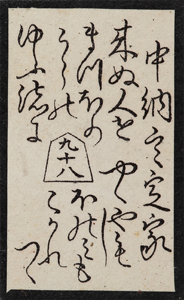 中納言定家
来ぬ人を
まつほの
うらの
ゆふ
に
九十八
やくやも
しほのみも
こかれ
つゝ